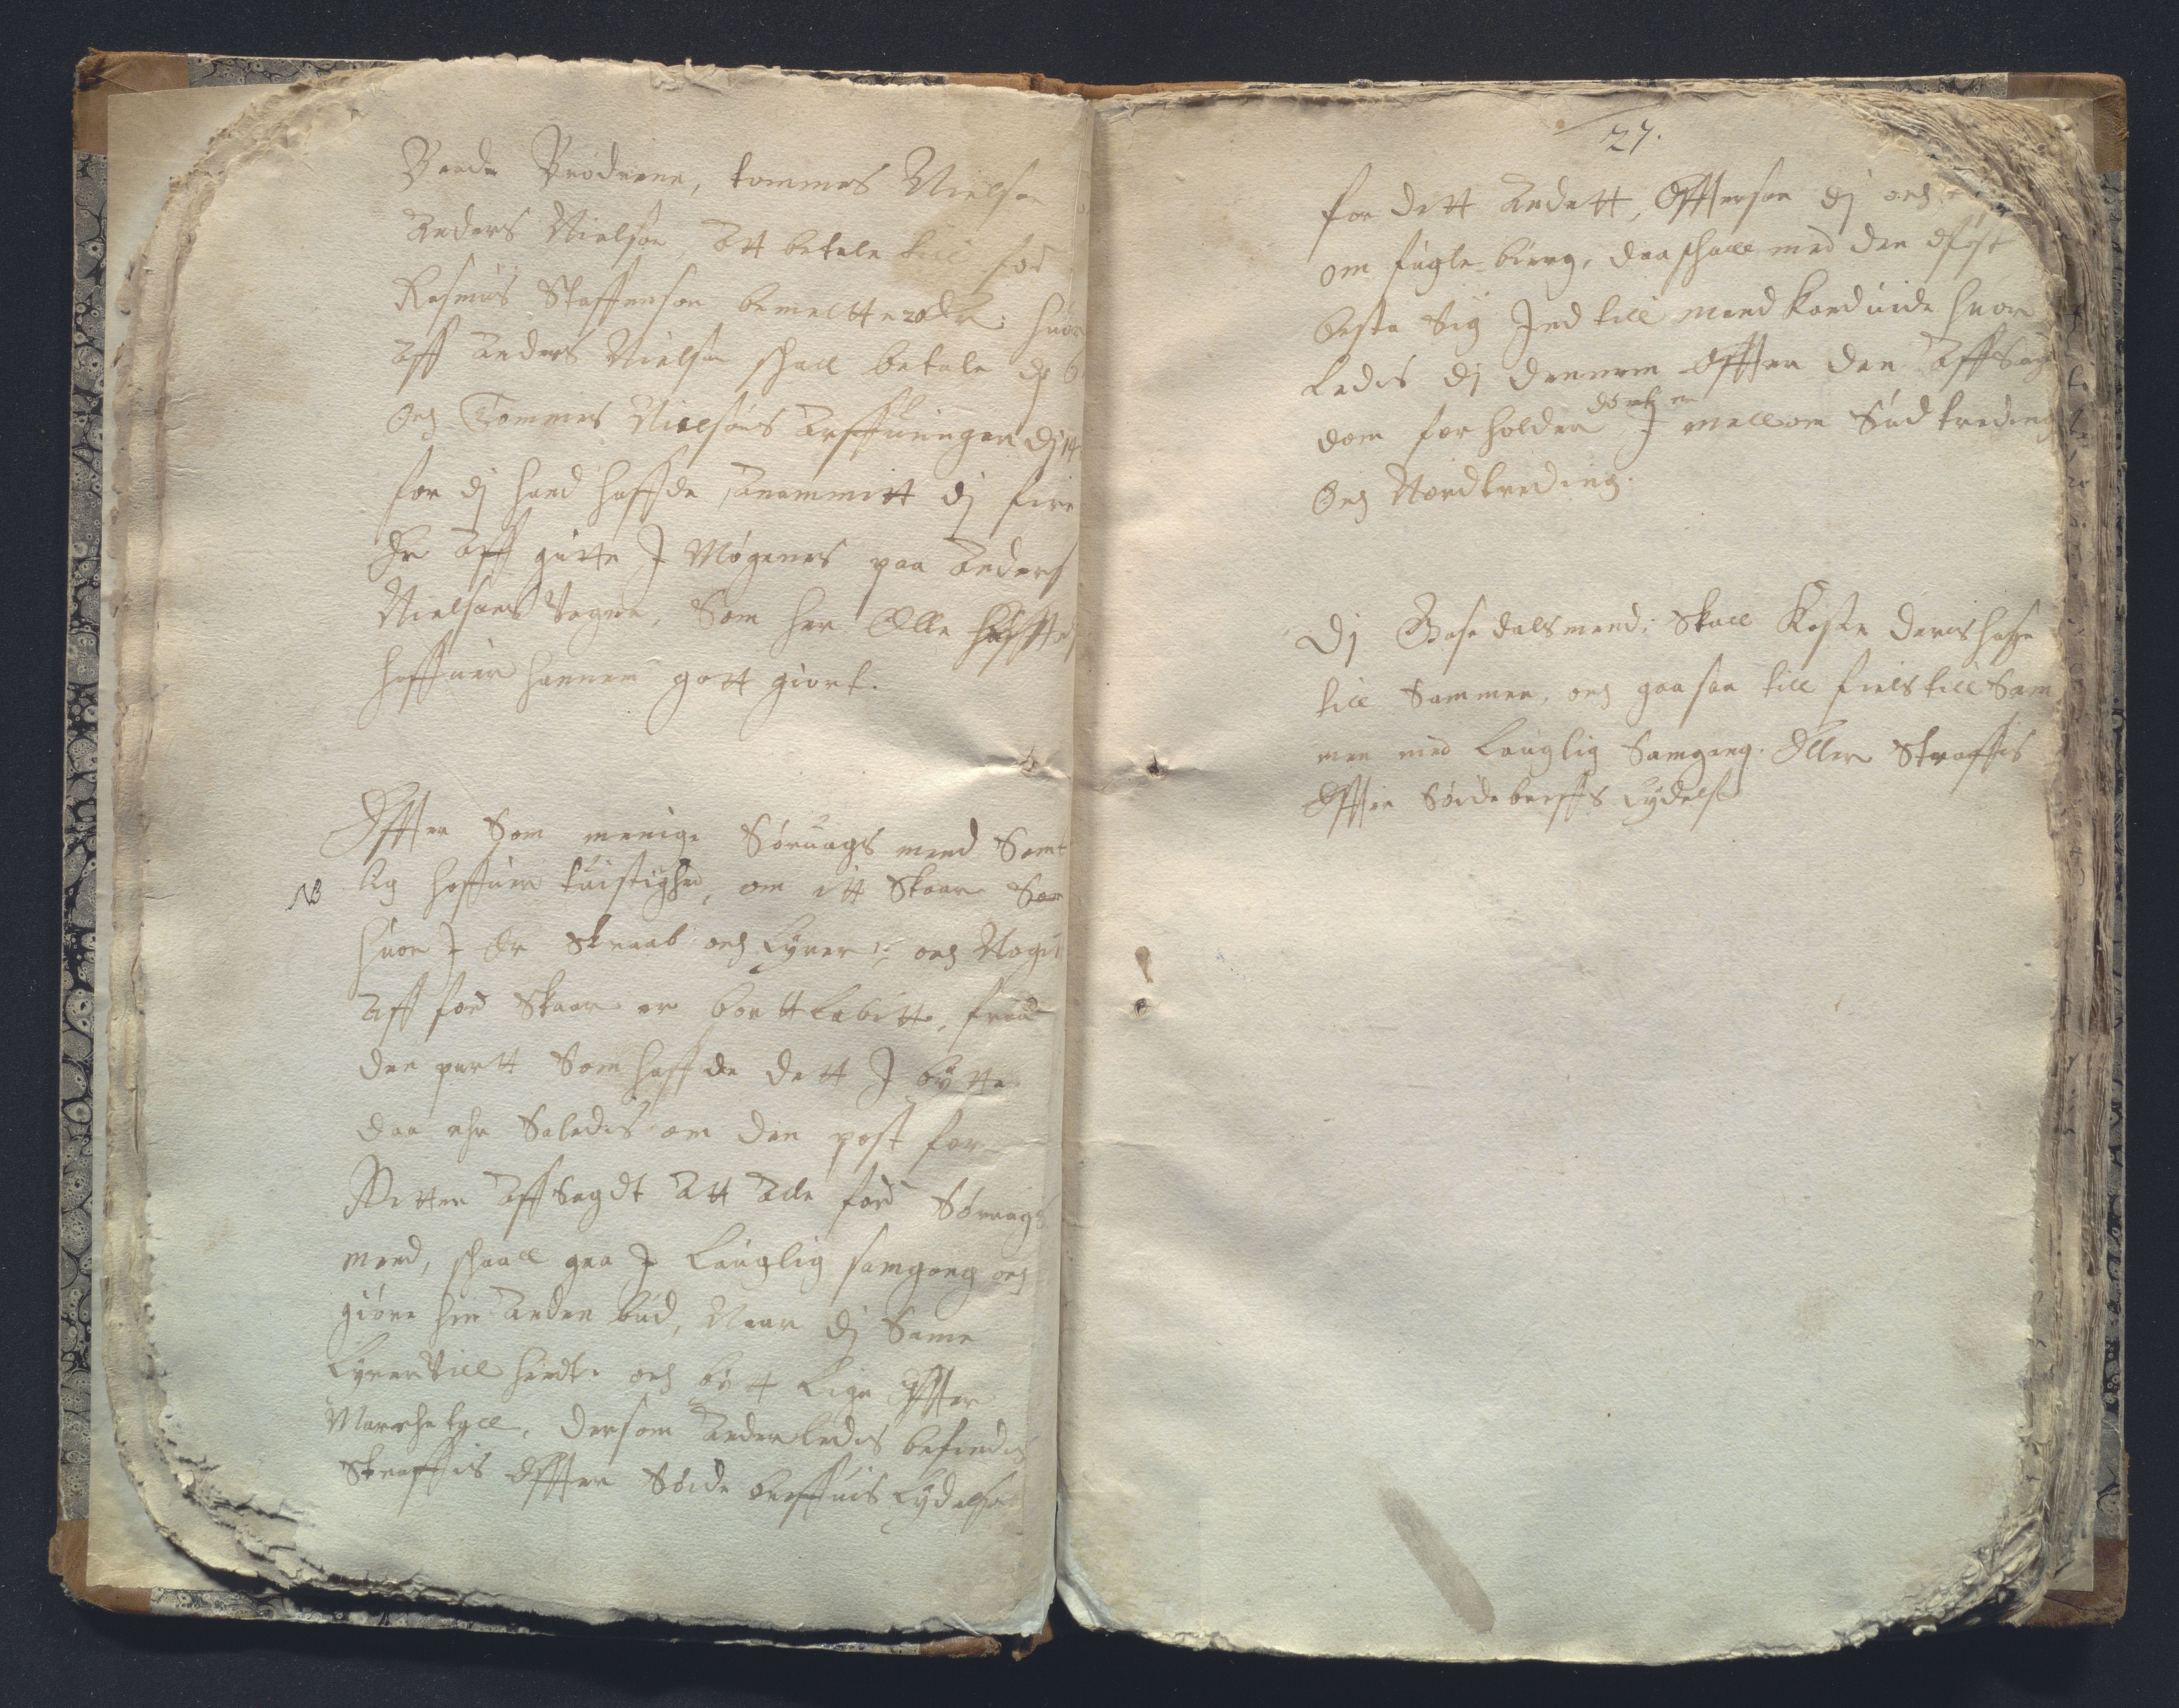 Baade Brødrene, tommes Nielsøn
Anders Nielsøn, Att betale till ford
Rasmus Staffensøn bemeltte 20 dr: huor
Aff Anders Nielsøn schall betale dj 6
Och Tommes Nielsøns Arffuinger dj 14
for dj hand haffde Anammitt dj fire
dr Aff gutte J Møgenes paa Anders
Nielsøns Vegne, Som her Olle
haffuer hannem gott giort.
Effter Som menige Søruags mend Samt
NB lig haffuer tuistighed, om itt Skaar Som
huor J Er Skraab och Lyrer och Noget
Aff ford Skaar er bortt labitt, fraa
den partt Som haffde dett J bytte
daa ehr Saledis om den post for
Retten Affsagdt Att Alle ford Søruags
mend, schaall gaa J Lauglig samgang och
giøre hin Anden bud, Naar dj Same
Lyrer till hendt. och bytt Lige Effter
Marche tall, dersom Anderledis befindis
Straffis Effter Seide breffuis Lydelse
27.
for dett Andett, Effterson dj och
om fugle bierg, daa schall med den først
beste Sig Ind till mend kand uide huor
Ledis dj dennem Effter den Affsagt
dom forholder J mellom Sudtreding
Och Nordtreding.
Dj Gasedals mend, Skall Kaste deris haffe
till Sammen, och gaa saa till fiels till Sam
men med Lauglig Samgang. Eller Straffis
Effter Seidebreffs Lydelse